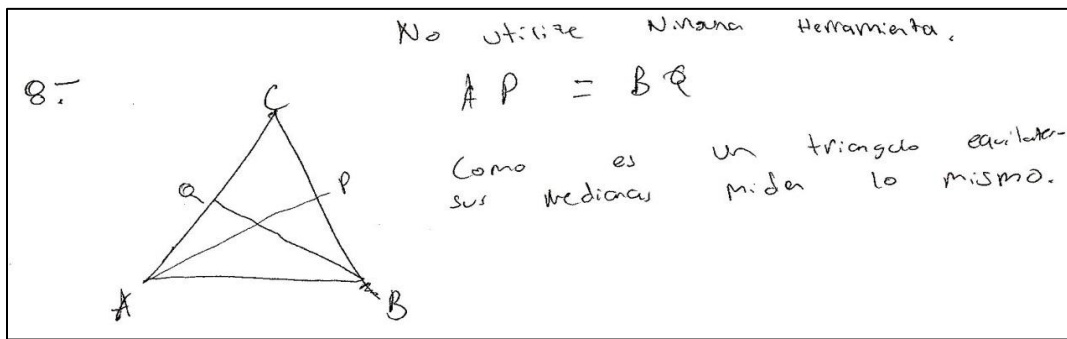 No utilize Ninguna Herramienta.
8.-
AP = BQ
Como es un triangulo equilater-
sus medianas miden lo mismo.
C
Q
P
A
B